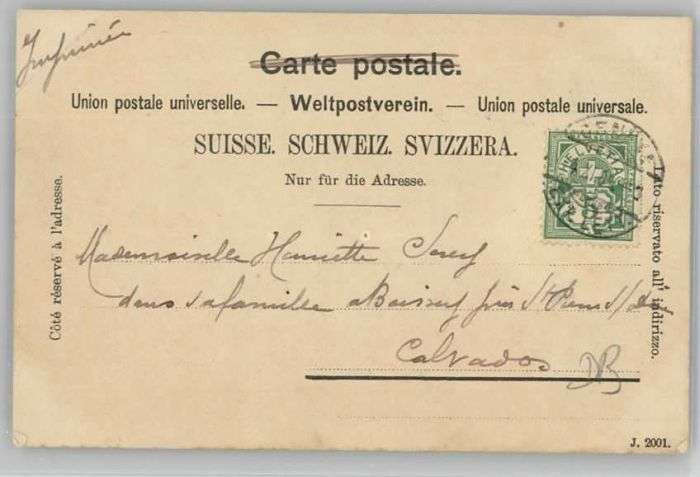 Imprimée
Carte postale.
Union postale universelle. — Weltpostverein. — Union postale universale.
SUISSE. SCHWEIZ. SVIZZERA.
Nur für die Adresse.
Côté réservé à l'adresse.
Lato riservato all' indirizzo.
HELVETIA
Mademoiselle Henriette
dans sa famille a Boissey près St Pierre s/
Calvados
J. 2001.